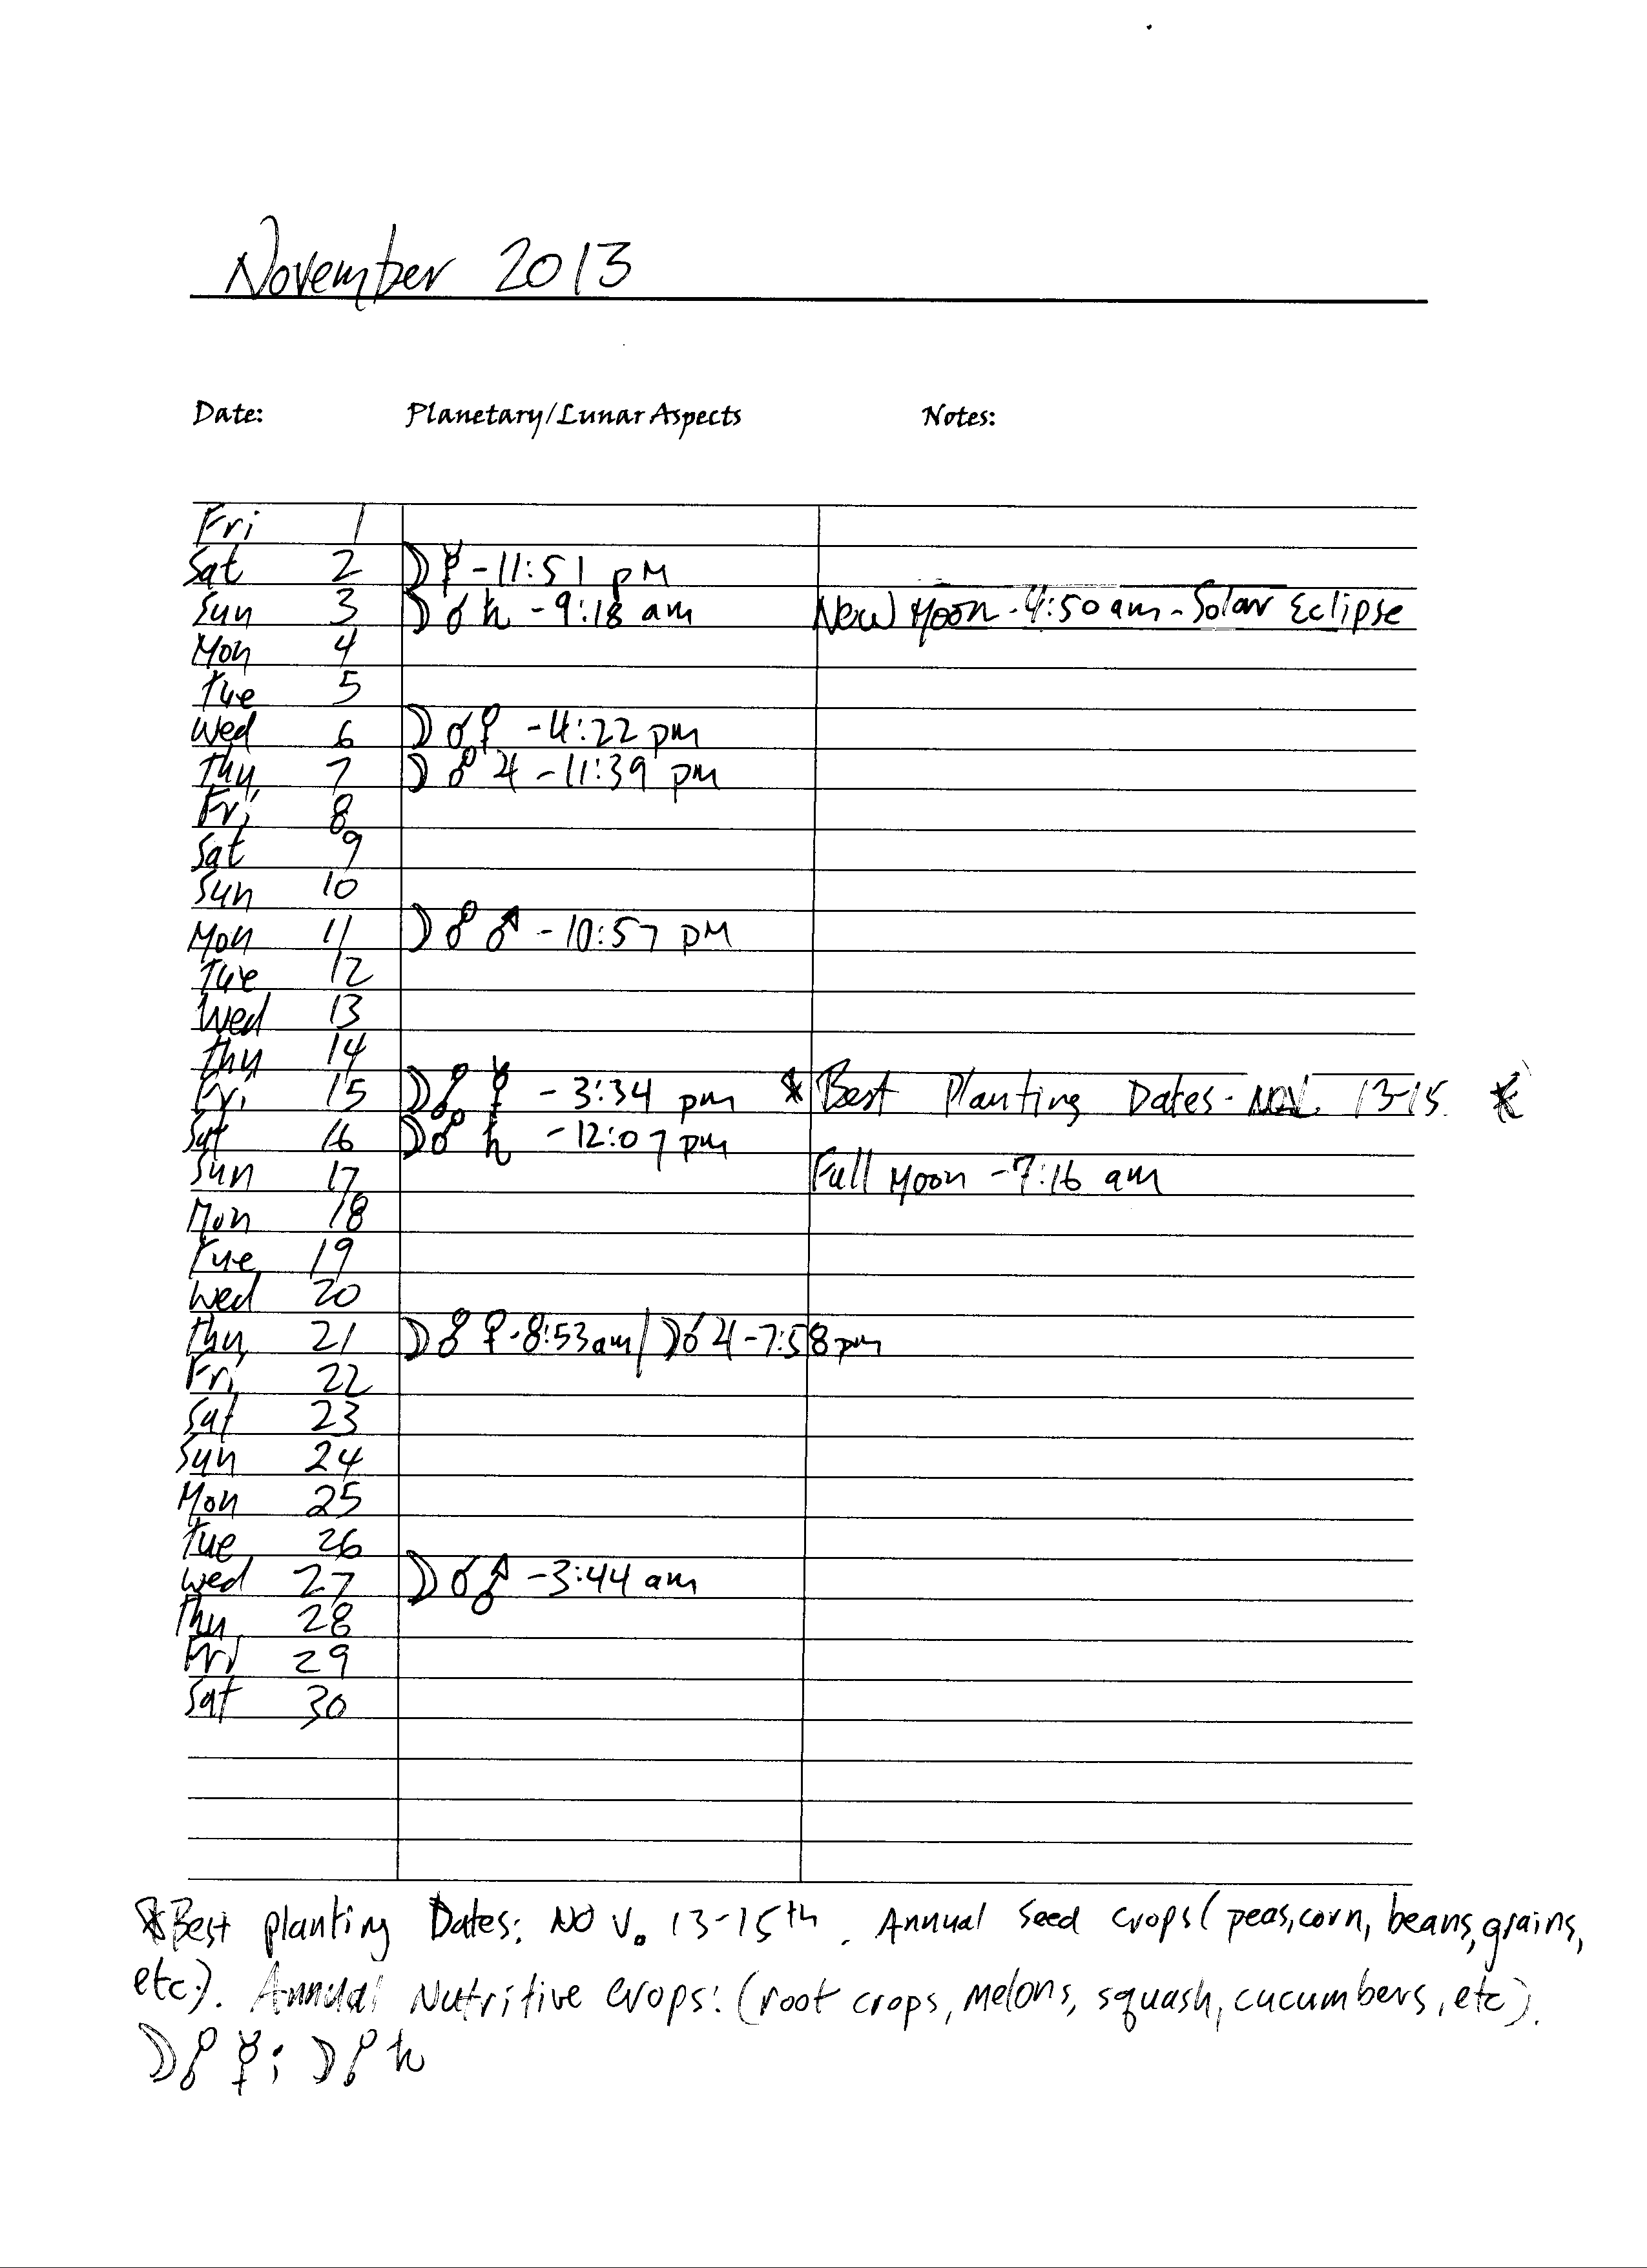 November 2013
Date: Planetary/Lunar Aspects Notes:
Fri 1
Sat 2 ☽ ☿ - 11:51 pm
Sun 3 ☽ ☌ ♄ - 9:18 am New Moon - 4:50 am - Solar Eclipse
Mon 4
Tue 5
Wed 6 ☽ ☌ ♀ - 4:22 pm
Thu 7 ☽ ☍ ♃ - 11:39 pm
Fri 8
Sat 9
Sun 10
Mon 11 ☽ ☍ ♂ - 10:57 pm
Tue 12
Wed 13
Thu 14
Fri 15 ☽ ☍ ☿ - 3:34 pm * Best Planting Dates - Nov. 13-15. *
Sat 16 ☽ ☍ ♄ - 12:07 pm
Sun 17 Full Moon - 7:16 am
Mon 18
Tue 19
Wed 20
Thu 21 ☽ ☍ ♀ - 8:53 am / ☽ ☌ ♃ - 7:58 pm
Fri 22
Sat 23
Sun 24
Mon 25
Tue 26
Wed 27 ☽ ☌ ♂ - 3:44 am
Thu 28
Fri 29
Sat 30
* Best planting Dates: Nov. 13-15th. Annual Seed crops (peas, corn, beans, grains,
etc.). Annual Nutritive crops: (root crops, melons, squash, cucumbers, etc).
☽ ☍ ☿; ☽ ☍ ♄